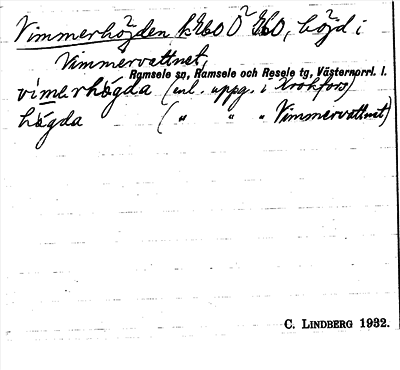 Vimmerhöjden kEbo Ö Ebo, höjd i
Vimmervattnet,
Ramsele sn, Ramsele och Resele tg, Västernorrl. l.
vimerhögda (enl. uppg. i Krokfors)
högda (" " " Vimmervattnet)
C. LINDBERG 1932.